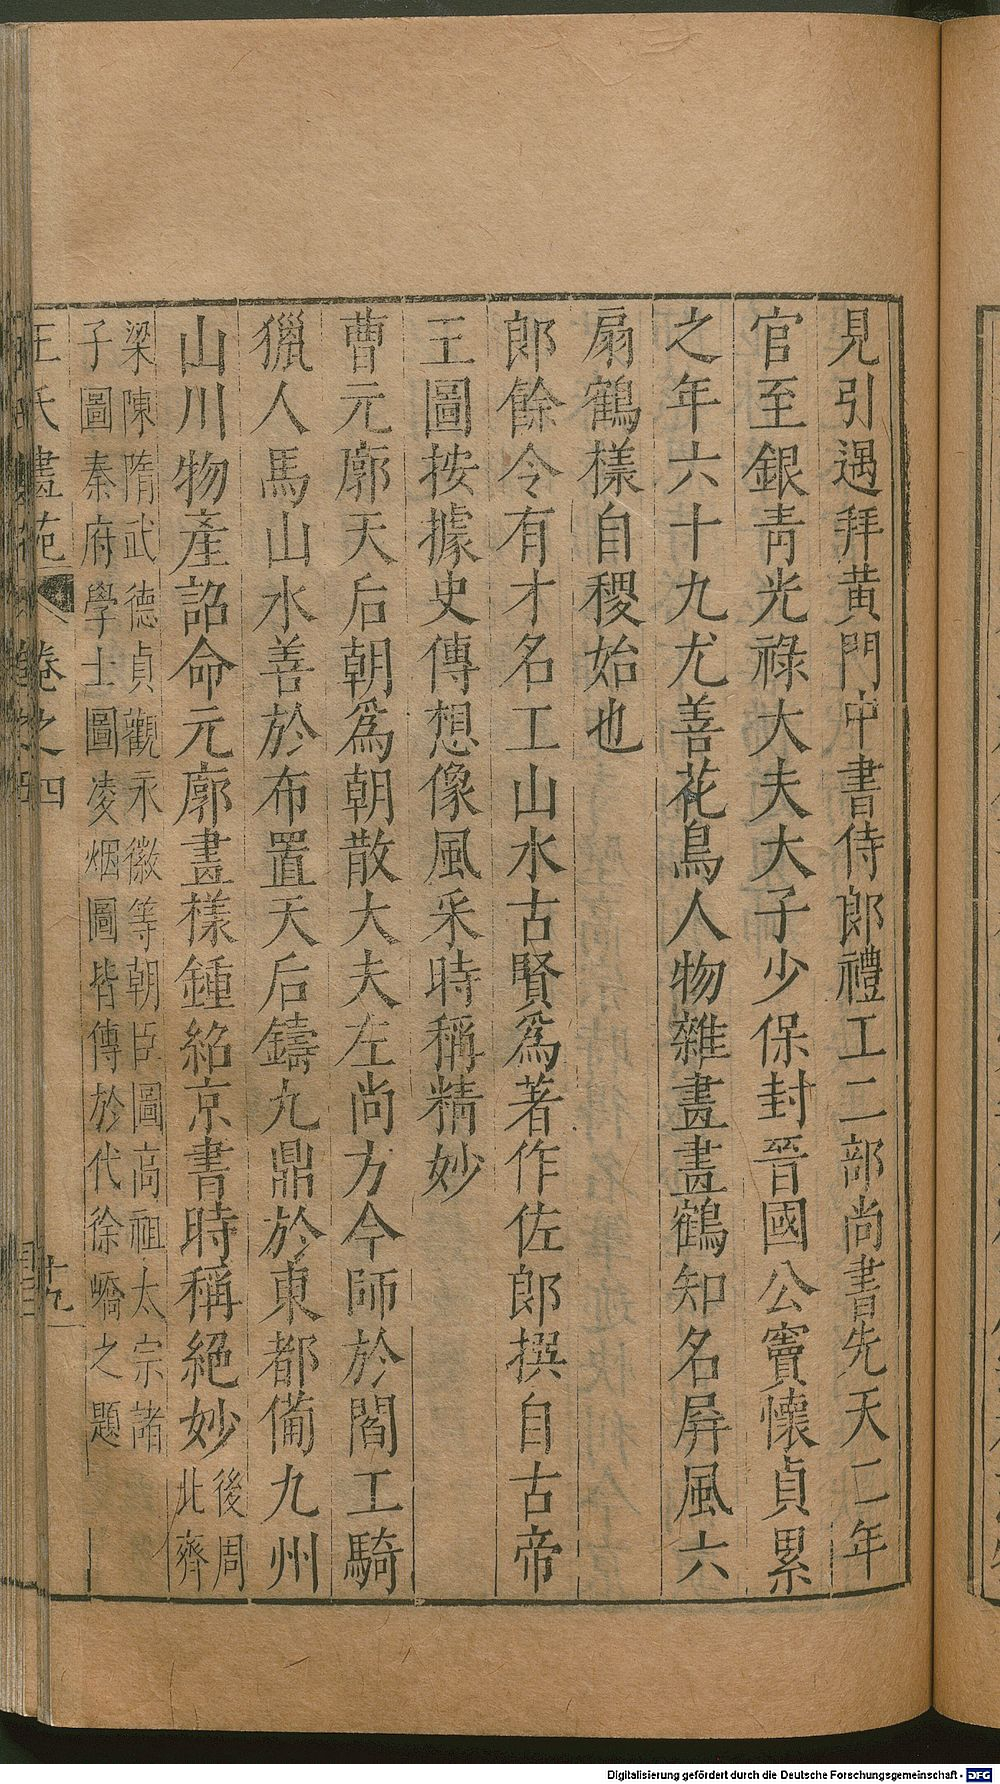 見引遇拜黃門中書侍郎禮工二部尚書先天二年
官至銀青光祿大夫大子少保封晉國公竇懷貞累
之年六十九尤善花鳥人物雜畫畫鶴知名屛風六
扇鶴樣自稷始也
郎餘令有才名工山水古賢爲著作佐郎撰自古帝
王圖按據史傳想像風采時稱精妙
曹元廓天后朝爲朝散大夫左尚方令師於閻工騎
獵人馬山水善於布置天后鑄九鼎於東都備九州
山川物產詔命元廓畫樣鍾紹京書時稱絕妙後周此齊
梁陳隋武德貞觀永徽等朝臣圖高祖太宗諸
子圖秦府學士圖凌烟圖皆傳於代徐嶠之題
王氏畫苑 卷之四 十九
Digitalisierung gefördert durch die Deutsche Forschungsgemeinschaft - DFG